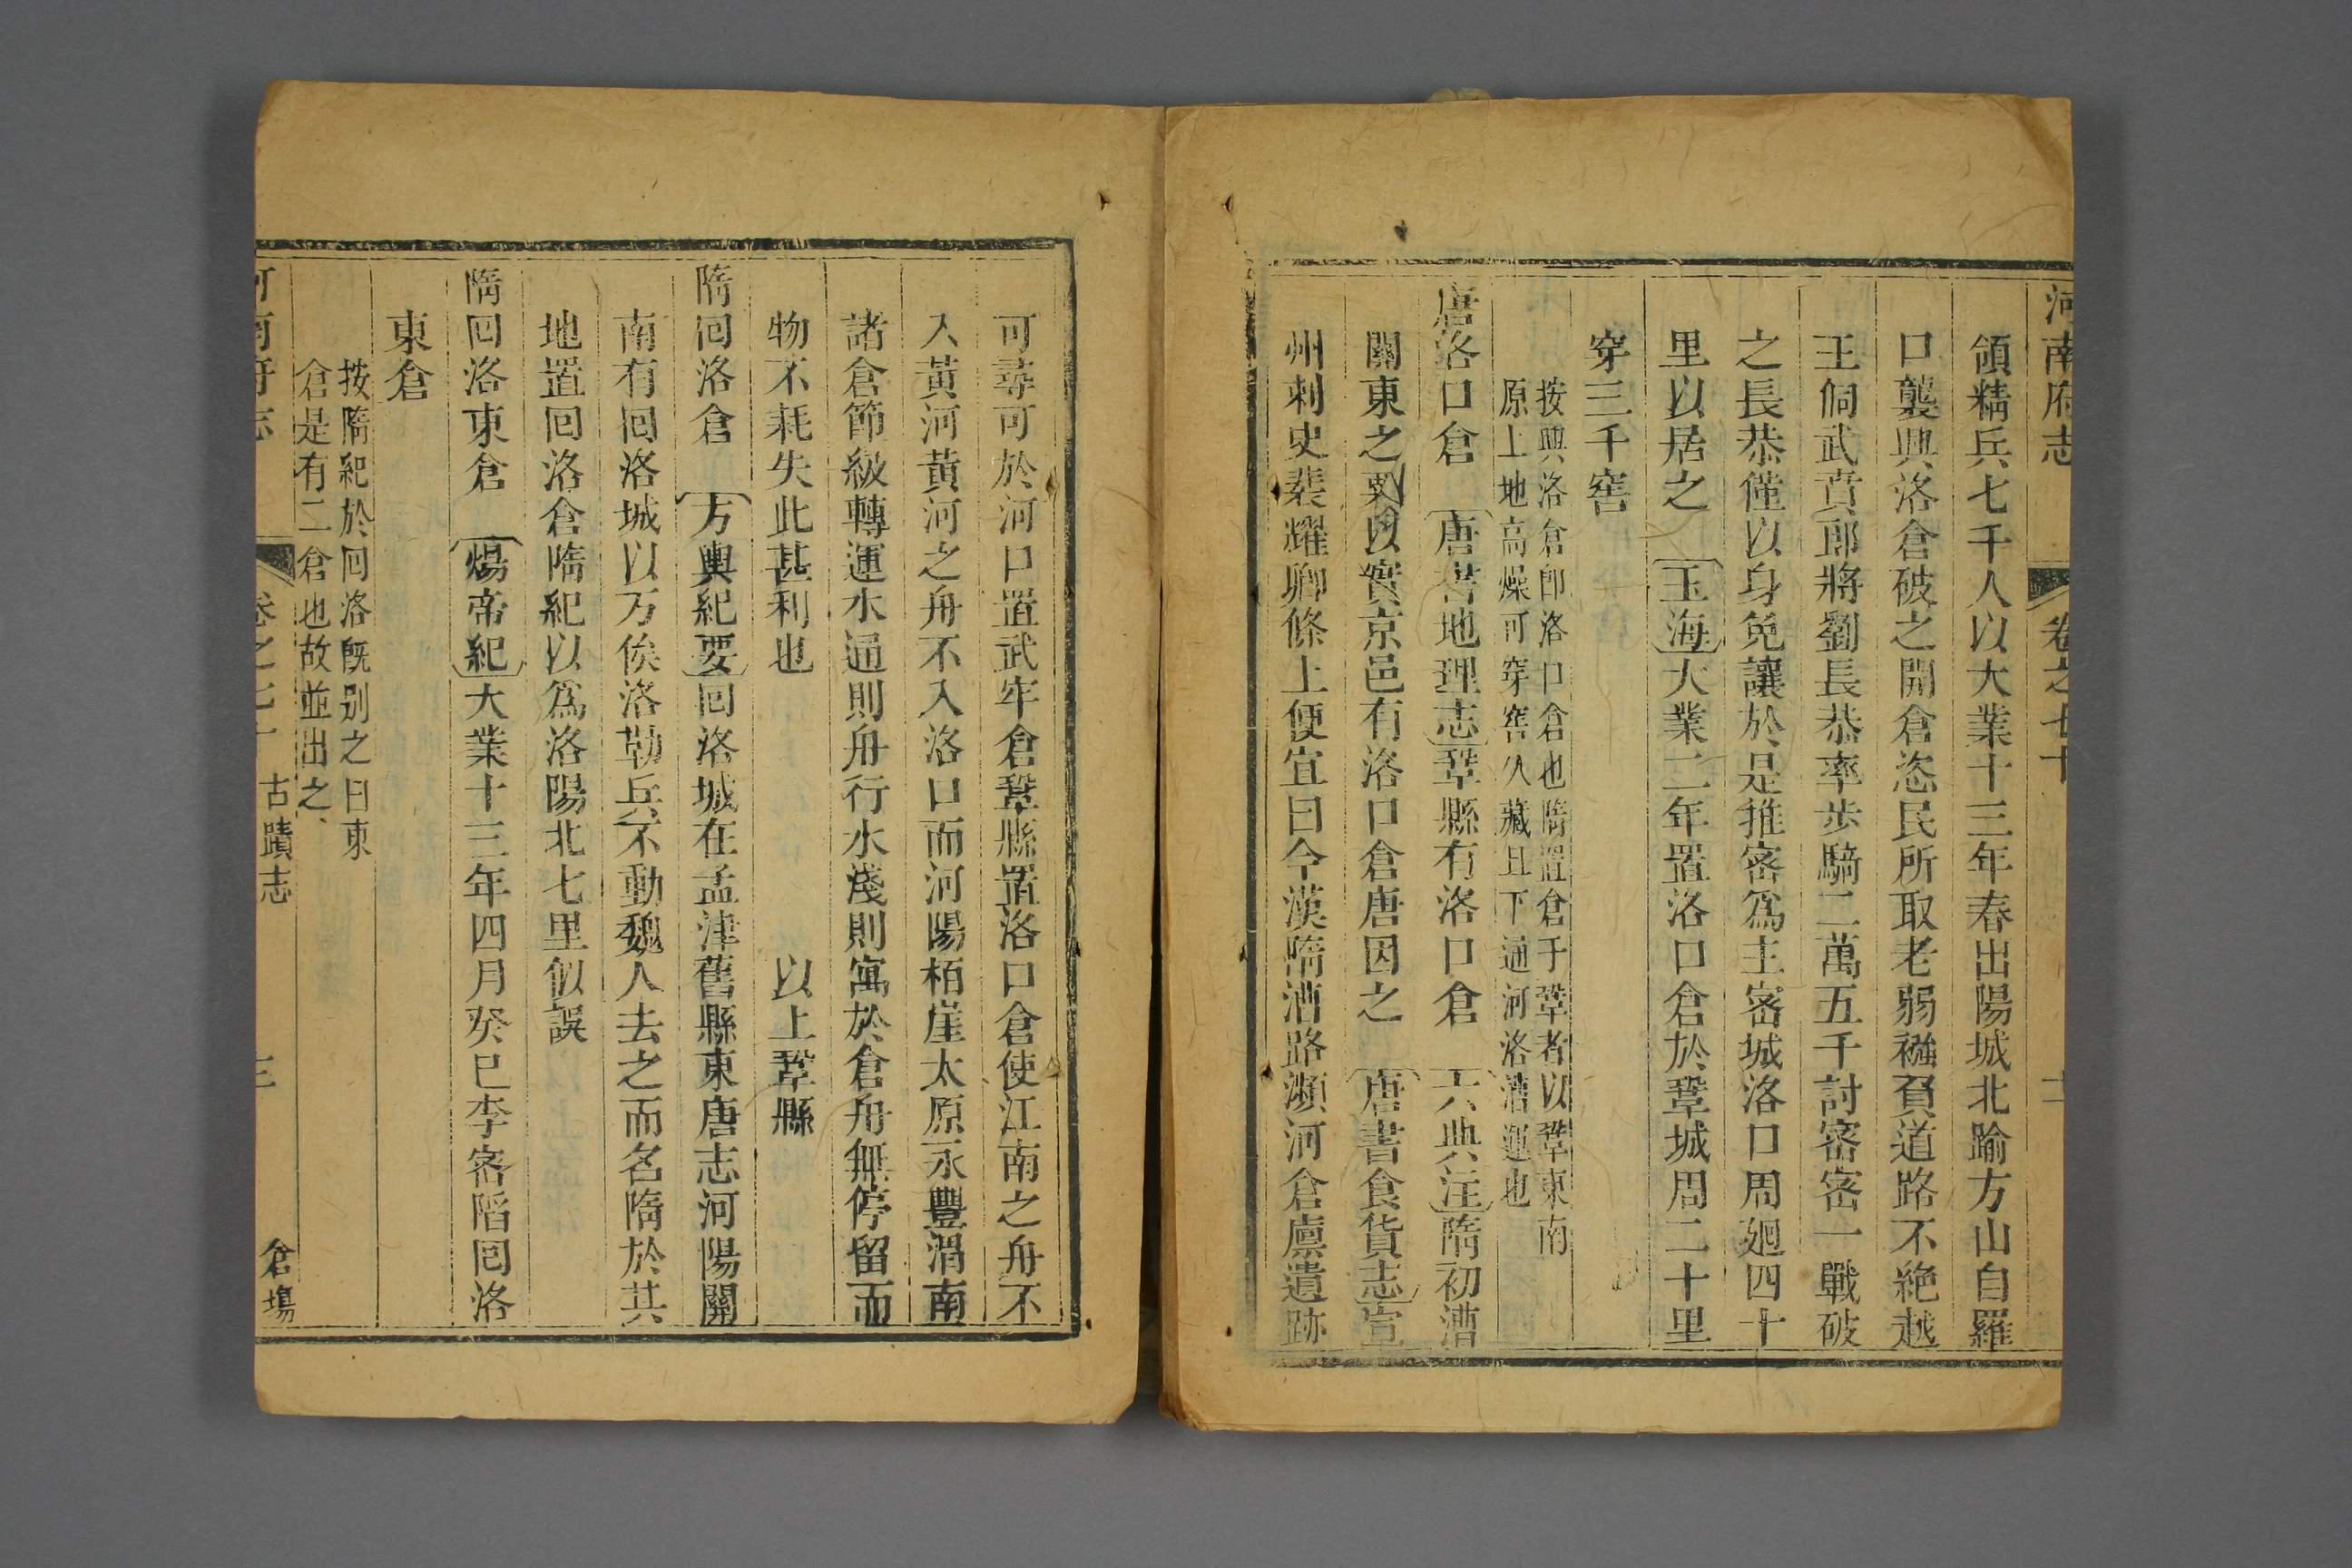 河南府志 卷之七十
領精兵七千人以大業十三年春出陽城北踰方山自羅
口襲興洛倉破之開倉恣民所取老弱襁負道路不絶越
王侗武賁郎將劉長恭率步騎二萬五千討密密一戰破
之長恭僅以身免讓於是推密爲主密城洛口周廻四十
里以居之 玉海大業二年置洛口倉於鞏城周二十里
穿三千窖
按興洛倉卽洛口倉也隋置倉于鞏者以鞏東南
原上地高燥可穿窖久藏且下通河洛漕運也
唐洛口倉 唐書地理志鞏縣有洛口倉 六典注隋初漕
關東之粟以實京邑有洛口倉唐因之 唐書食貨志宣
州刺史裴耀卿條上便宜曰今漢隋漕路瀕河倉廪遺跡
可尋可於河口置武牢倉鞏縣置洛口倉使江南之舟不
入黃河黃河之舟不入洛口而河陽栢崖太原永豐渭南
諸倉節級轉運水通則舟行水淺則寓於倉舟無停留而
物不耗失此甚利也 以上鞏縣
隋囘洛倉 方輿紀要囘洛城在孟津舊縣東唐志河陽關
南有囘洛城以万俟洛勒兵不動魏人去之而名隋於其
地置囘洛倉隋紀以爲洛陽北七里似誤
隋囘洛東倉 煬帝紀大業十三年四月癸巳李密陷囘洛
東倉
按隋紀於囘洛旣别之曰東
倉是有二倉也故並出之
河南府志 卷之七十 古蹟志 三 倉塲